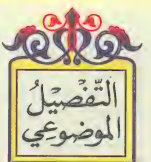 التَّفْصِيْلُ
الموضُوعِي